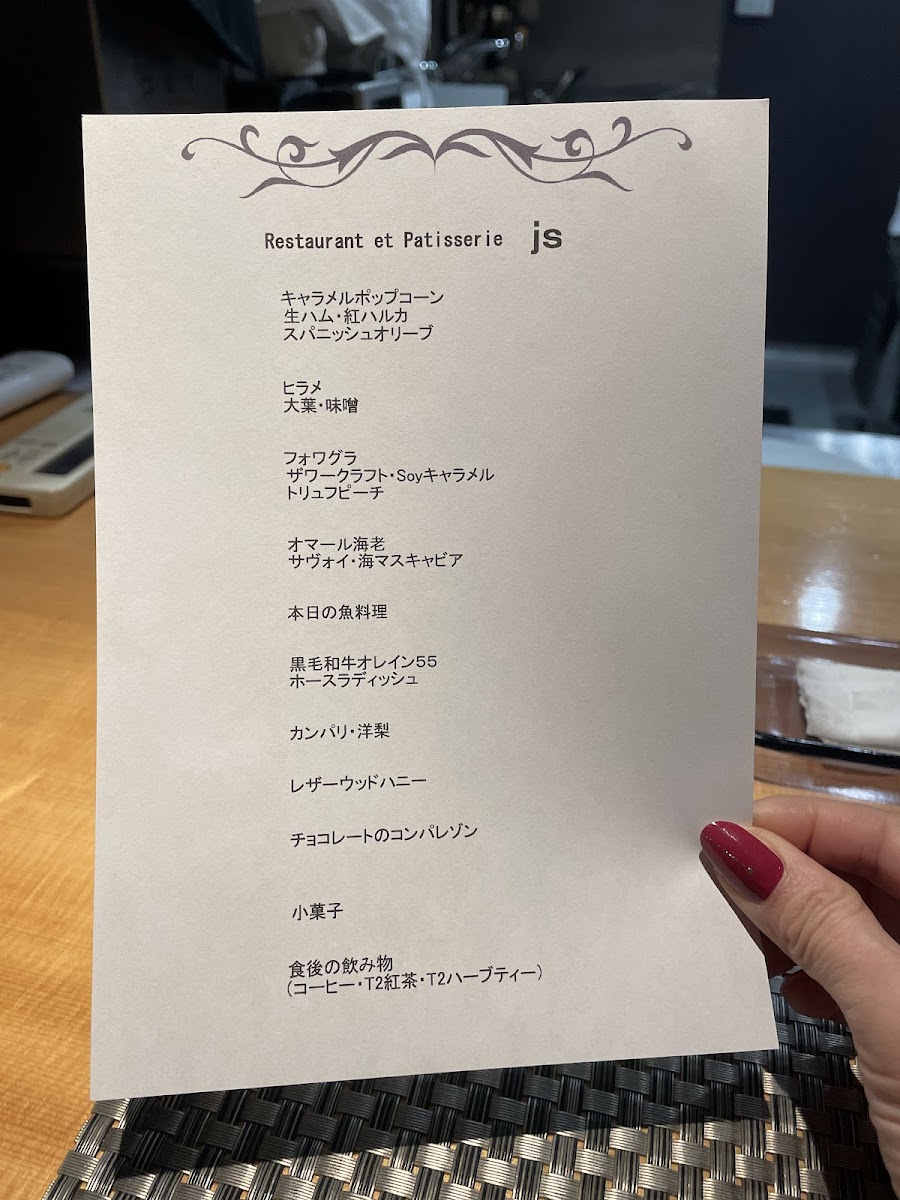 Restaurant et Patisserie js
キャラメルポップコーン
生ハム・紅ハルカ
スパニッシュオリーブ
ヒラメ
大葉・味噌
フォワグラ
ザワークラフト・Soyキャラメル
トリュフピーチ
オマール海老
サヴォイ・海マスキャビア
本日の魚料理
黒毛和牛オレイン55
ホースラディッシュ
カンパリ・洋梨
レザーウッドハニー
チョコレートのコンパレゾン
小菓子
食後の飲み物
(コーヒー・T2紅茶・T2ハーブティー)